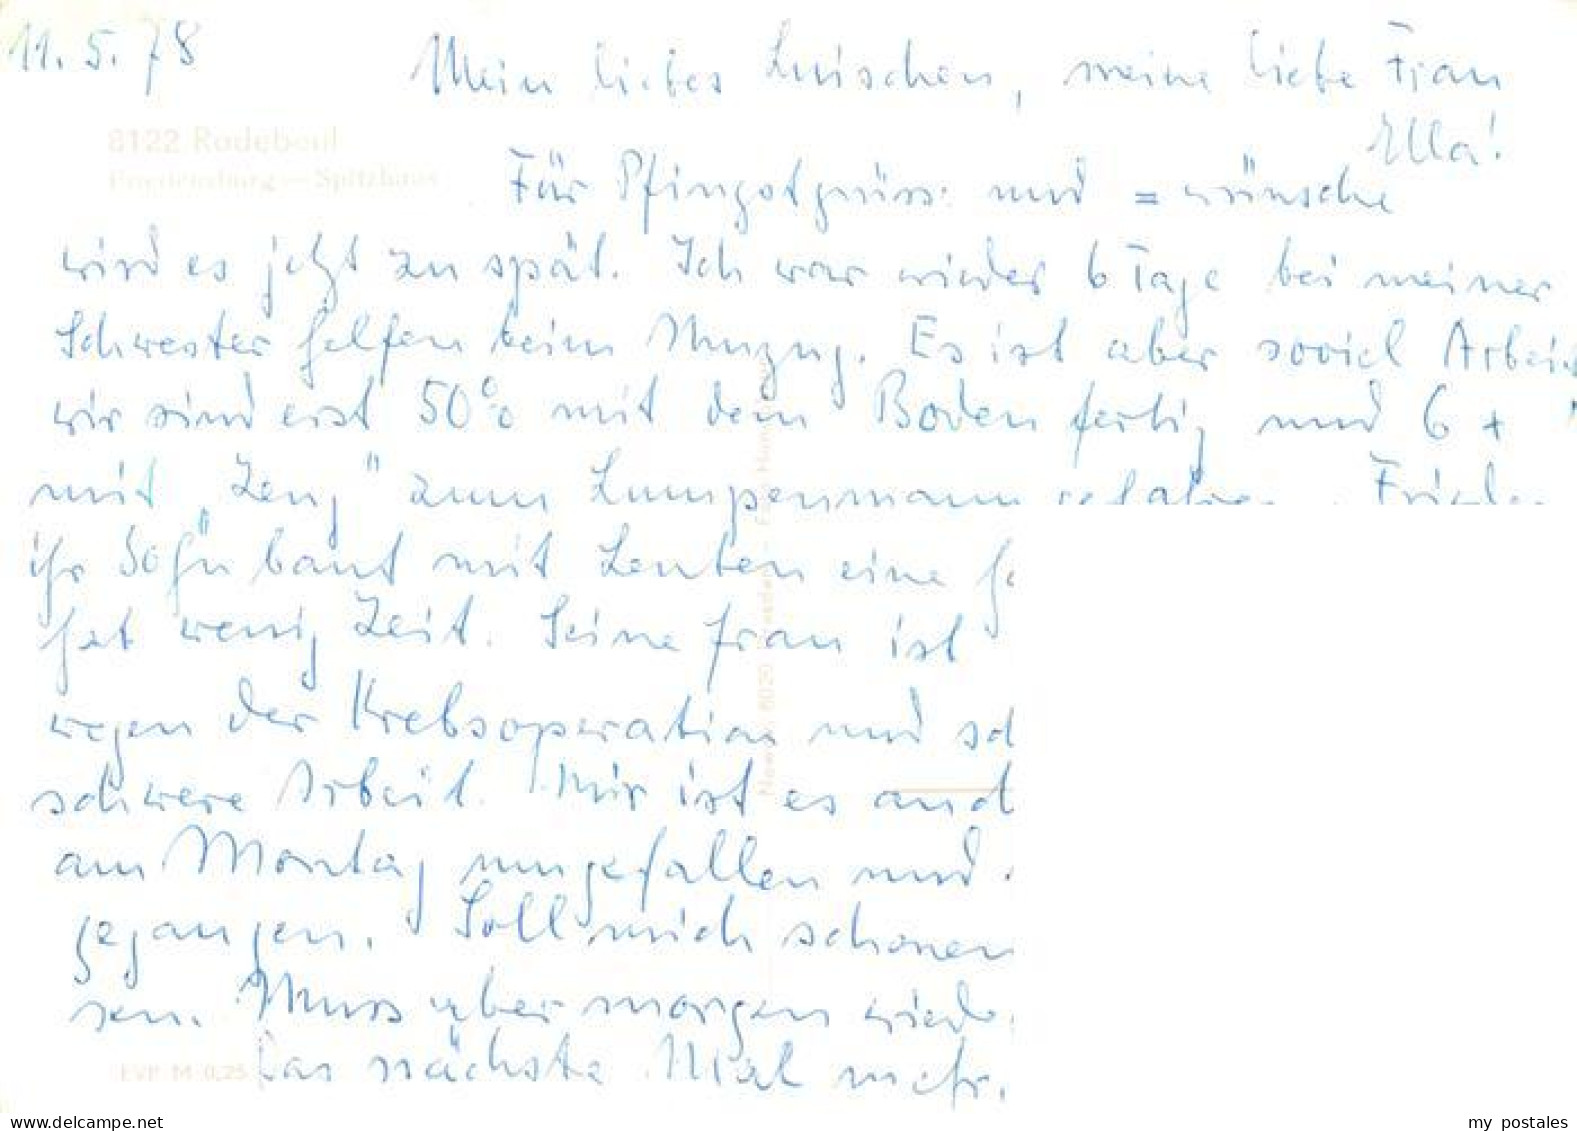 11.5.78
Mein liebes Luischen, meine liebe Frau
Ella!
8122 Radebeul
Friedensburg — Spitzhaus
Für Pfingstgrüss: und = wünsche
wird es jetzt zu spät. Ich war wieder 6 Tage bei meiner
Schwester helfen beim Umzug. Es ist aber soviel Arbeit
wir sind erst 50% mit dem Boden fertig und 6 x
mit "Zeug" zum Lumpenmann gefahren. Friede
ihr Sohn baut mit Leuten eine
hat wenig Zeit. Seine Frau ist
wegen der Krebsoperation und
schwere Arbeit. Mir ist es auch
am Montag umgefallen und
gegangen. Soll mich schonen
sen. Muss übermorgen wiede
Das nächste Mal mehr.
EVP M 0,25
www.delcampe.net
my postales